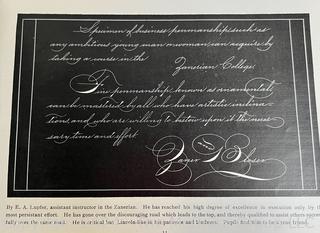 Specimen of business penmanship such as
any ambitious young man or woman can acquire by
taking a course in the Zanerian College.
Fine penmanship, known as ornamental,
can be mastered by all who have artistic inclina-
tions, and who are willing to bestow upon it the neces-
sary time and effort.
Zaner & Bloser
By E. A. Lupfer, assistant instructor in the Zanerian. He has reached his high degree of excellence in execution only by the
most persistent effort. He has gone over the discouraging road which leads to the top, and thereby qualified to assist others
fully over the same road. He is critical but Lincoln-like in his patience and kindness. Pupils find him to be a true friend.